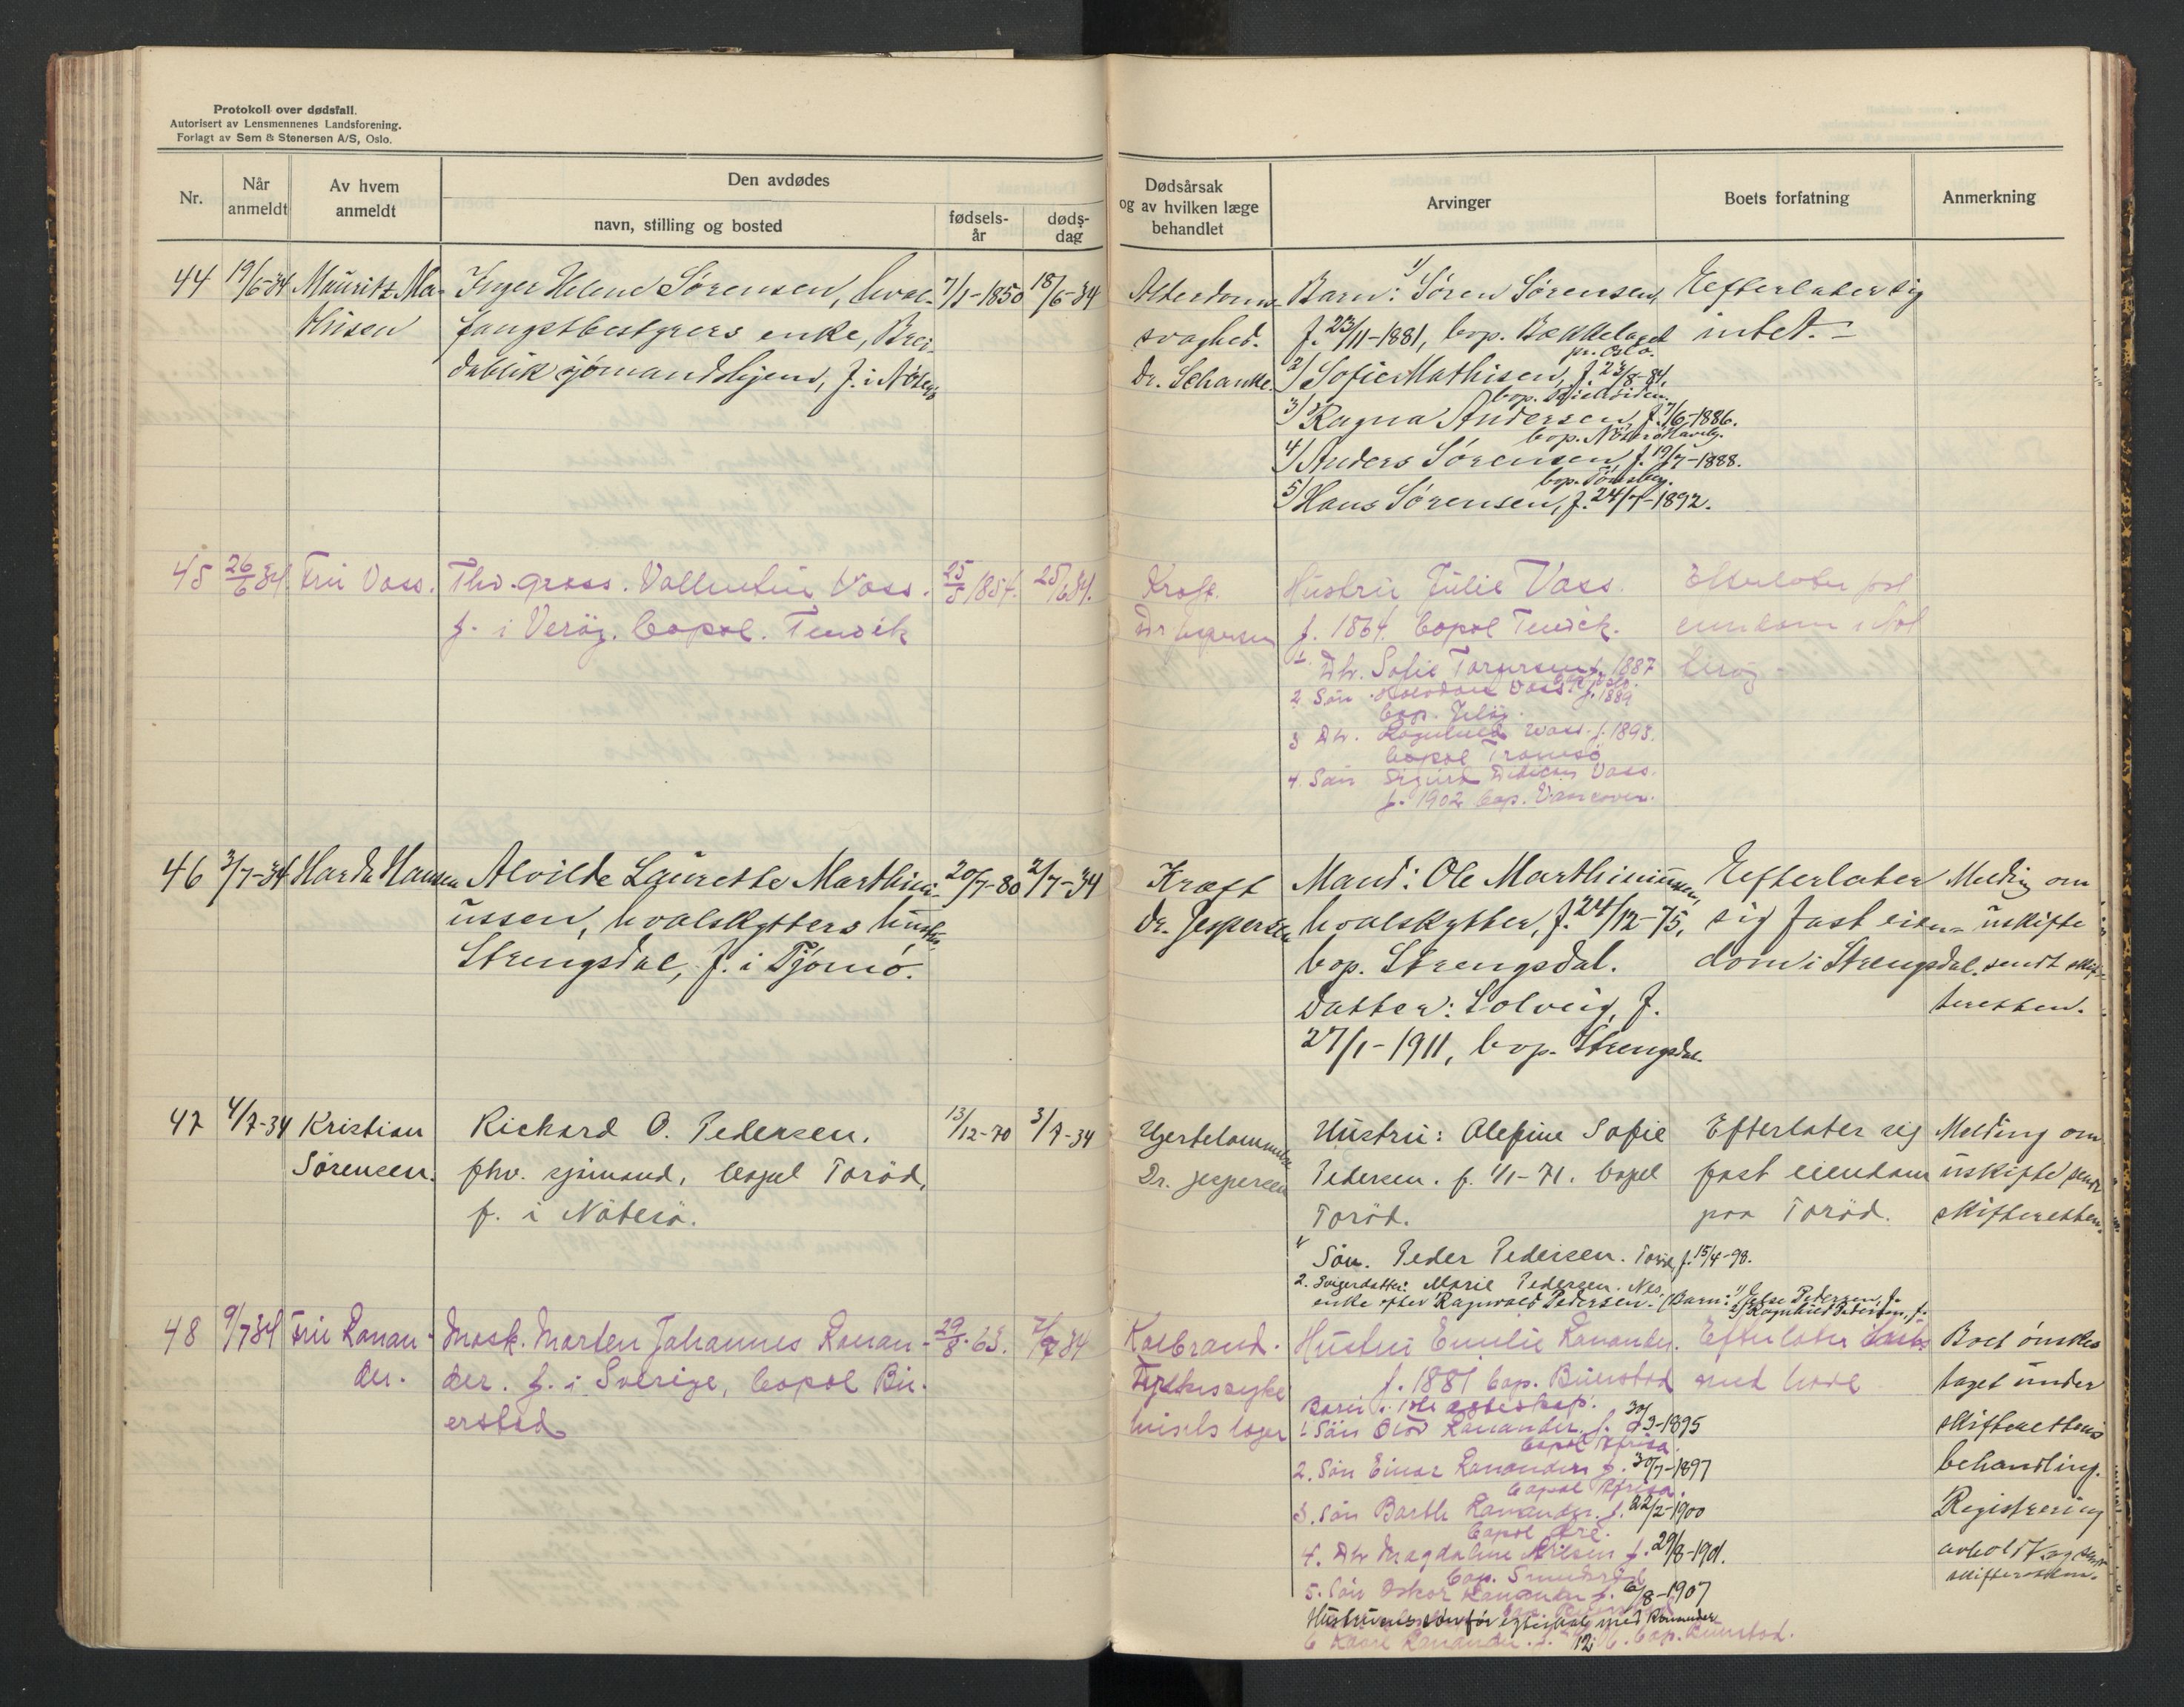 Protokoll over dødsfall.
Autorisert av Lensmennenes Landsforening.
Forlagt av Sem & Stenersen A/S, Oslo.
Nr.
Når anmeldt
Av hvem anmeldt
Den avdødes
navn, stilling og bosted
fødsels-år
døds-dag
Dødsårsak og av hvilken læge behandlet
Arvinger
Boets forfatning
Anmerkning
44 19/6-34 Mauritz Ma-
thisen
Inger Helene Sørensen, hval-
fangstbestyrers enke, Brei-
dablik sjømandshjem, f. i Nøterø
7/1-1850 18/6-34
Alderdoms-
svaghed.
Dr. Schanke.
1/ Barn: Søren Sørensen,
f. 23/11-1881, bop. Bekkelaget
pr. Oslo.
2/ Sofie Mathisen, f. 23/8-84,
3/ Ragna Andersen, f. 7/6-1886.
bop. Nøterø
4/ Anders Sørensen, f. 19/7-1888.
bop. Tønsberg.
5/ Hans Sørensen, f. 24/7-1892.
Efterlater sig
intet.
45 26/6 34. Fru Vass.
Vass.
f. i Verøy. bopæl. Tenvik
25/5 1854. 25/6 34.
Kræft.
Dr Jespersen
Hustru Julie Vass.
f. 1864. bopæl Tenvik.
1. Dtr. Sofie f. 1887
2 Søn Vass f. 1889
bop.
3 Dtr. Ragnhild Vass. f. 1893.
bopæl Tromsø
4. Søn Sigurd Vass.
f. 1902 bop. Vancover.
Efterlater fast
eiendom i Nøt
terøy
46 3/7-34 Harda Hansen
Alvilde Laurette Marthini-
ussen, hvalskytters hustru,
Strengsdal, f. i Tjømø.
20/7-80 2/7-34
Kræft
Dr. Jespersen
Mand: Ole Marthiniussen,
hvalskytter, f. 24/12-75,
bop. Strengsdal.
Datter: Solveig, f.
27/1-1911, bop. Strengsdal
Efterlater
sig fast eien-
dom i Strengsdal.
Melding om
uskifte
sendt skif-
teretten.
47 4/7-34 Kristian
Sørensen.
Richard O. Pedersen.
fhv. sjømand, bopæl Torød,
f. i Nøterø.
13/12-70 3/7-34
Hjertelammelse
Dr. Jespersen
Hustru: Olefine Sofie
Pedersen. f. 1/1-71. bopæl
Torød.
1/ Søn. Peder Pedersen. Torød, f. 15/4-98.
2. Svigerdatter: Marie Pedersen. Nes,
enke efter Ragnvald Pedersen. (Barn: 1/ Else Pedersen, f.
2/ Ragnhild Pedersen, f.
Efterlater sig
fast eiendom
paa Torød.
Melding om
uskifte sendt
skifteretten.
48 9/7 34 Fru Ranan-
der.
Mask. Morten Johannes Ranan-
der. f. i Sverige, bopæl Bu-
erstad
29/8-63. 34
Kolbrand.
Hustru Emilie Ranander.
f. 1881 bop. Buerstad
Barn i 1ste egteskap:
1 Søn Olov Ranander, f. 30/9-1895
bopæl Afrika.
2. Søn Einar Ranander f. 30/7-1897
bopæl Afrika.
3. Søn Ranander. f. 22/2-1900
4. Dtr Magdaline Nilsen f. 29/8-1901.
bop.
5. Søn Oskar Ranander f. 6/8-1907
Hustruens søn før egteskap med Ranander
6 Kaare Ranander. bop. Buerstad.
Efterlater
med
Boet ønskes
taget under
skifterettens
behandling.
Registrering
avholdt og sendt
skifteretten.